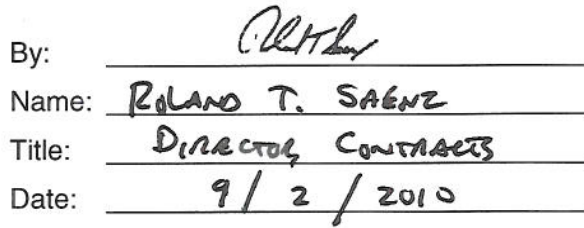 By:
Name: ROLAND T. SAENZ
Title: DIRECTOR, CONTRACTS
Date: 9/2/2010